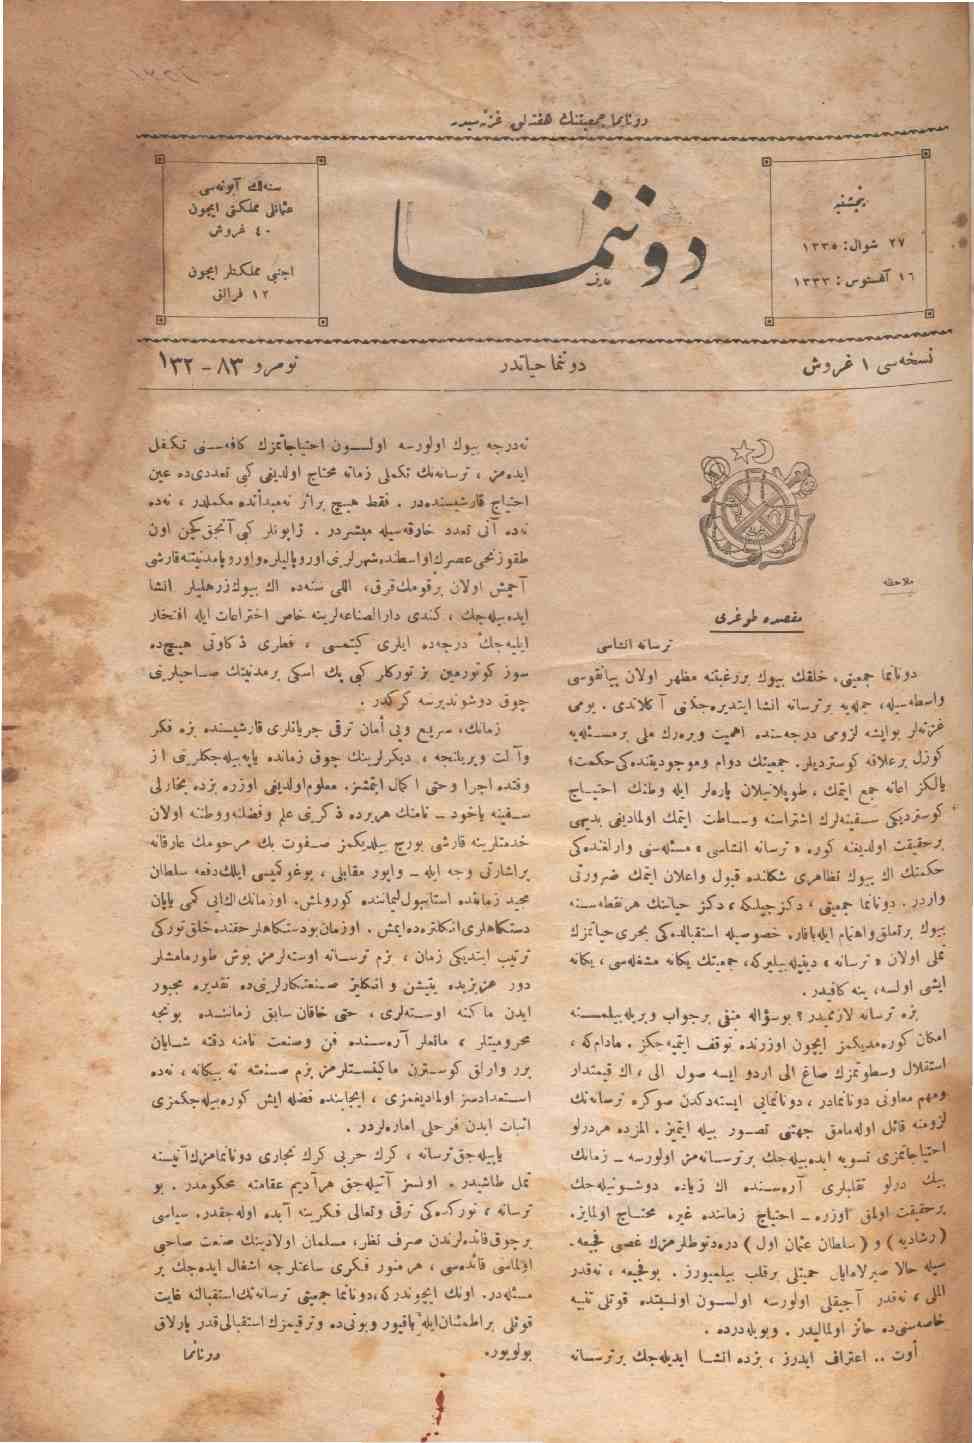 دونانما جمعیتنك هفته‌لق غزته‌سیدر
پنجشنبه
٢٧ شوال: ١٣٣٥
١٦ آغستوس: ١٣٣٣
دوننما
سنه‌لك آبونه‌سی
عثمانلی مملكتی ایچون
٤٠ غروش
اجنبی مملكتلر ایچون
١٢ فرانق
نسخه‌سی ١ غروش
دوننما حیاتدر
نومرو ٨٣ – ١٣٢
ملاحظه
مقصده طوغری
ترسانه انشاسی
دونانما جمعیتی، خلقك بیوك بررغبتنه مظهر اولان پیانقوسی
واسطه‌سیله، جمله‌یه برترسانه انشا ایتدیره‌جكنی آكلاتدی. یومی
غزته‌لر بوایشه لزومی درجه‌سنده اهمیت ویره‌رك ملی برمسئله‌یه
كوزل برعلاقه كوستردیلر. جمعیتك دوام وموجودیتنده‌كی حكمت؛
یالكز اعانه جمع ایتمك، طوپلانیلان پاره‌لر ایله وطنك احتیاج
كوستردیكی سفینه‌لرك اشتراسنه وساطت ایتمك اولمادیغی بدیهی
برحقیقت اولدیغنه كوره «ترسانه انشاسی» مسئله‌سنی وارلغنده‌كی
حكمتك اك بیوك تظاهری شكلنده قبول واعلان ایتمك ضرورتی
واردر. دونانما جمعیتی، دكزجیلكه، دكز حیاتنك هرنقطه‌سنه
بیوك برتعلق واهتمام ایله‌باقار. خصوصیله استقبالده‌كی بحری حیاتمزك
تملی اولان «ترسانه» دینیله‌بیلیركه، جمعیتك یكانه مشغله‌سی، یكانه
ایشی اولسه، ینه كافیدر.
بزه ترسانه لازمیدر؟ بوسؤاله منفی برجواب ویریله‌بیلمسنه
امكان كوره‌مدیكمز ایچون اوزرنده توقف ایتمیه‌جكز. مادام‌كه،
استقلال وسطوتمزك صاغ الی اردو ایسه صول الی، اك قیمتدار
ومهم معاونی دونانمادر، دونانمایی ایسته‌دكدن صوكره ترسانه‌نك
لزومنه قائل اوله‌مامق جهتنی تصور بیله ایتمیز. المزده هردرلو
احتیاجاتمزی تسویه ایده‌بیله‌جك برترسانه‌مز اولورسه – زمانك
بیك درلو تقلبلری آره‌سنده اك زیاده دوشونیله‌جك
برحقیقت اولمق اوزره – احتیاج زماننده غیره محتاج اولمایز.
(رشادیه) و (سلطان عثمان اول) دره‌دنوطلرمزك غصبی فجیعه.
سیله حالا صیزلامایان حمیتلی برقلب بیلمیورز. بوفجیعه، نه‌قدر
المی، نه‌قدر آجیقلی اولورسه اولسون اونسبتده قوتلی تنبیه
خاصه‌سنی‌ده حائز اولمالیدر. وبویله‌درده.
أوت .. اعتراف ایدرز، بزده انشا ایدیله‌جك برترسانه
نه‌درجه بیوك اولورسه اولسون احتیاجاتمزك كافه‌سنی تكفل
ایده‌مز، ترسانه‌نك تكملی زمانه محتاج اولدیغی كبی تعددی‌ده عین
احتیاج قارشیسنده‌در. فقط هیچ براثر نه‌مبدأنده مكملدر، نه‌ده
نه‌ده آنی تعدد خارقه‌سیله مبشردر. ژاپونلر كبی آنجق كچن اون
طقوزنجی عصرك اواسطنده شهرلرینی اوروپالیلره واوروپامدنیتنه قارشی
آچمش اولان برقومك قرق، اللی سنه‌ده اك بیوك زرهلیلر انشا
ایده‌بیله‌جك، كندی دارالصناعه‌لرینه خاص اختراعات ایله افتخار
ایلیه‌جك درجه‌ده ایلری كیتمسی، فطری ذكاوتی هیچ‌ده
سوز كوتورمین بز توركلر كبی پك اسكی برمدنیتك صاحبلرینی
چوق دوشوندیرسه كركدر.
زمانك، سریع وبی أمان ترقی جریانلری قارشیسنده بزه فكر
وآلت ویریلنجه، دیكرلرینك چوق زمانده یاپه‌بیله‌جكلرینی از
وقتده اجرا وحتی اكمال ایتمشز. معلوم‌اولدیغی اوزره بزده بخارلی
سفینه یاخود – نامنك هریرده ذكرینی علم وفضلنه‌ووطننه اولان
خدمتلرینه قارشی بورج بیلدیكمز صفوت بك مرحومك عارفانه
براشارتی وجه ایله – واپور مقابلی، بوغوكمیسی ایلك‌دفعه سلطان
مجید زماننده استانبول‌لیماننده كورولمش. اوزمانك‌ال‌ایی كمی یاپان
دستكاهلری‌انكلتره‌ده‌ایمش. اوزمان‌بودستكاهلرحقنده خلق‌توركی
ترتیب ایتدیكی زمان، بزم ترسانه اوسته‌لرمز بوش طورمامشلر
دور عزیزیده یتیشن و انكلیز صنعتكارلرینی‌ده تقدیره مجبور
ایدن ماكنه اوسته‌لری، حتی خاقان سابق زماننده بونجه
محرومیتلر، مانعلر آره‌سنده فن وصنعت نامنه دقته شایان
برر وارلق كوسترن ماكنیستلرمز بزم صنعته نه بیكانه، نه‌ده
استعدادسز اولمادیغمزی، ایجابنده فضله ایش كوره‌بیله‌جكمزی
اثبات ایدن فرحلی اماره‌لردر.
یاپیله‌جق‌ترسانه، كرك حربی كرك تجاری دونانمامزك‌آتیسنه
تمل طاشیدر. اونسز آتیله‌جق هرآدیم عقامته محكومدر. بو
ترسانه، تورك‌ه‌كی ترقی وتعالی فكرینه آبده اوله‌جقدر. سیاسی
برچوق‌فائده‌لرندن صرف نظر، مسلمان اولادینك صنعت صاحبی
اولماسی فائده‌سی، هرمنور فكری ساعتلرجه اشغال ایده‌جك بر
مسئله‌در. اونك ایچوندركه، دونانما جمعیتی ترسانه‌نك‌استقبالنه غایت
قوتلی براطمئنان‌ایله باقیور وبونی‌ده وترقیمزك استقبالی‌قدر پارلاق
بولویور.
دونانما